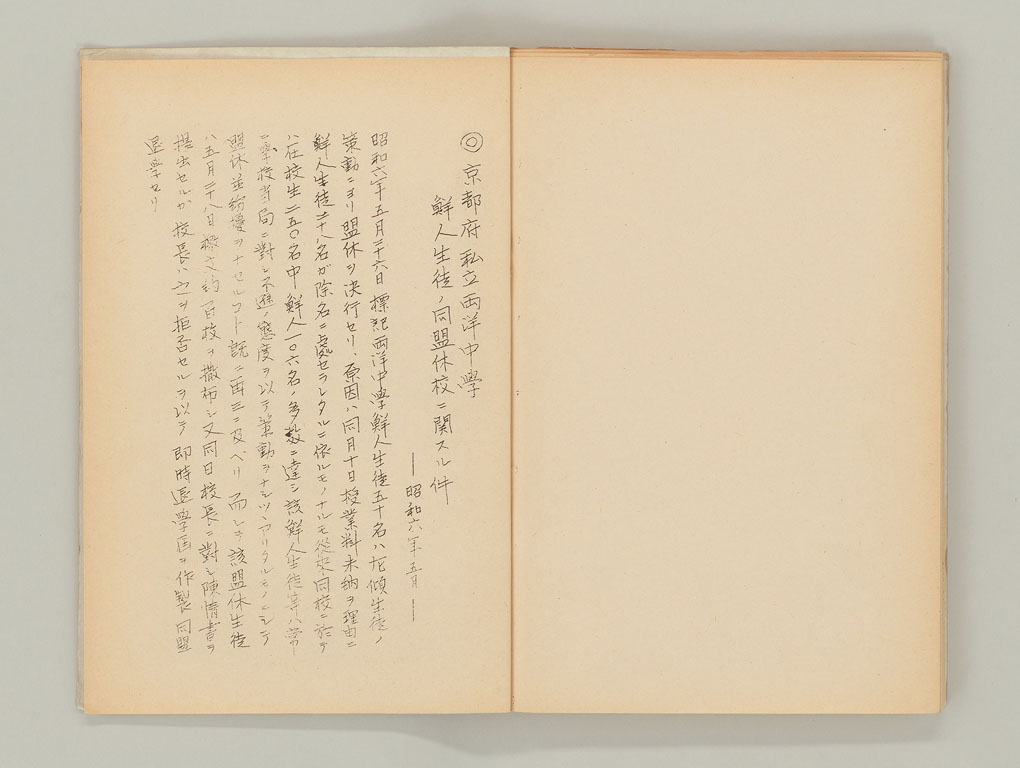 ◎京都府私立両洋中學
鮮人生徒ノ同盟休校ニ関スル件
―昭和六年五月―
昭和六年五月二十六日標記両洋中學鮮人生徒五十名ハ左傾生徒ノ
策動ニヨリ盟休ヲ決行セリ、原因ハ同月十日授業料未納ヲ理由ニ
鮮人生徒二十八名ガ除名ニ處セラレタルニ依ルモノナルモ従来同校ニ於テ
ハ在校生二五〇名中鮮人一〇六名ノ多数ニ達シ該鮮人生徒等ハ常
ニ學校当局ニ對シ不遜ノ態度ヲ以テ策動ヲナシツヽアリタルモノニシテ
盟休並紛擾ヲナセルコト既ニ再三ニ及ベリ而シテ該盟休生徒
ハ五月二十八日檄文約百枚ヲ撒布シ又同日校長ニ對シ陳情書ヲ
提出セルガ校長ハ之ヲ拒否セルヲ以テ即時退學届ヲ作製同盟
退學セリ